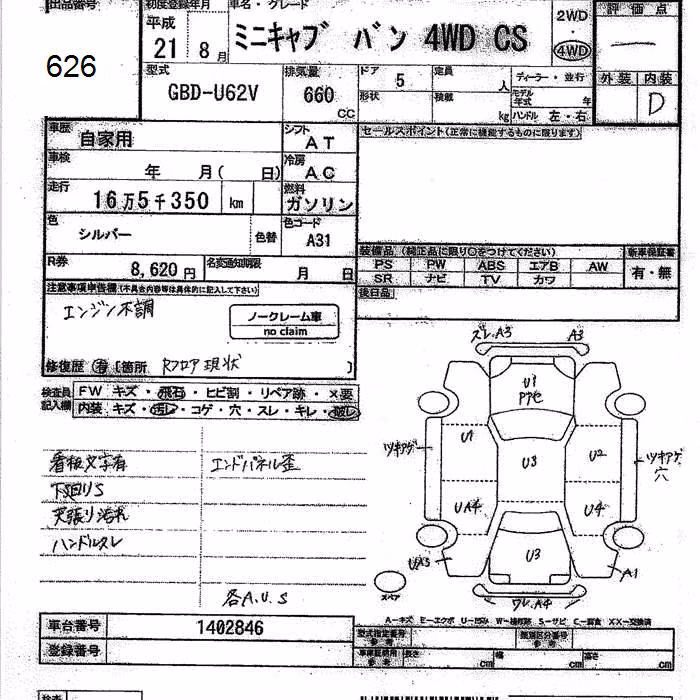 出品番号 初度登録年月 車名・グレード 評価点
626
平成 21 8月
ミニキャブ バン 4WD CS
2WD ・ 4WD
型式 GBD-U62V
排気量 660 CC
ドア 5
定員 人
ディーラー・並行
形状
積載 kg
モデル年式 年
ハンドル 左・右
外装 内装
D
車歴 自家用
シフト AT
セールスポイント(正常に機能するものに限ります)
車検 年 月( 日)
冷房 AC
走行 16万5千350 km
燃料 ガソリン
色 シルバー 色替
色コード A31
装備品 (純正品に限り○をつけてください) 新車保証書
PS PW ABS エアB AW 有・無
SR ナビ TV カワ
後日品
R券 8,620円
名変通知期限 月 日
注意事項申告欄(不具合内容等は具体的に記入して下さい)
エンジン不調
ノークレーム車
no claim
修復歴 有 [箇所 Rフロア現状 ]
検査員記入欄
FW キズ・飛石・ヒビ割・リペア跡・×要
内装 キズ・汚レ・コゲ・穴・スレ・キレ・破レ
看板文字有 エンドパネル歪
下回りS
天張り汚れ
ハンドルスレ
各A.U.S
ズレ.A3 A3
U1
U1 U3 U2
ツキアゲ ツキアゲ 穴
UA4 U4
U3
UA3 A1
スペア
ワレ.A4
A-キズ E-エクボ U-凹み W-補修跡 S-サビ C-腐食 XX-交換済
車台番号 1402846
型式指定番号 参考
類別区分番号 参考
登録番号
車庫証明用 参考 長さ cm 幅 cm 高さ cm
検査